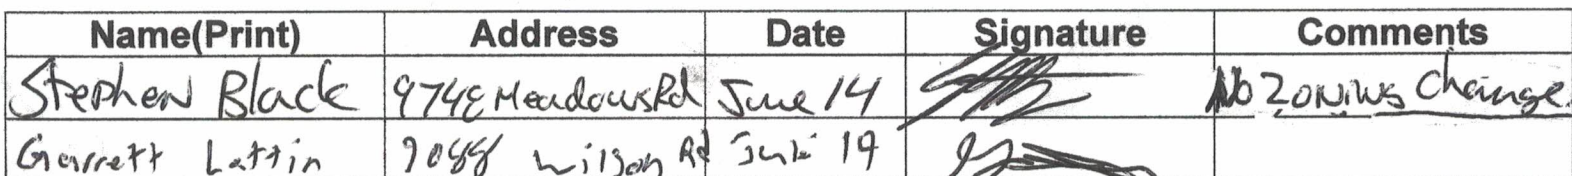 Name(Print) Address Date Signature Comments
Stephen Black 9748 Meadows Rd June 14 No Zoning Change
Garrett Lattin 9088 Wilson Rd June 19